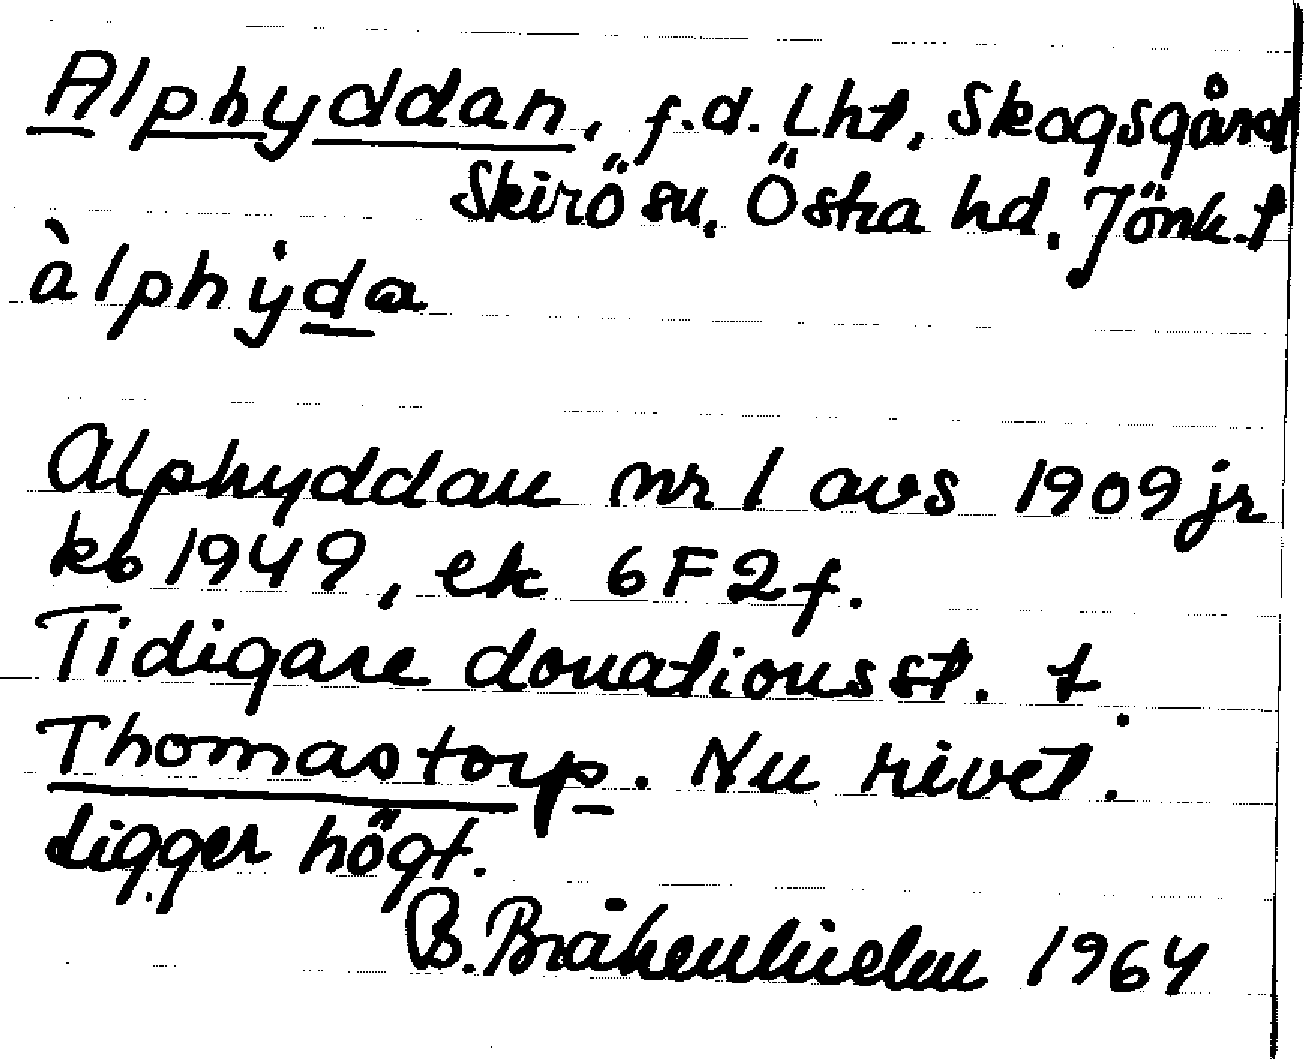 Alphyddan, f.d. Lht, Skogsgård
Skirö sn, Östra hd, Jönk.l
àlphýda
Alphyddan nr 1 avs 1909 jr
kb 1949, ek 6F2f.
Tidigare donationsst. t.
Thomastorp. Nu rivet.
Ligger högt.
B. Bråkenhielm 1964